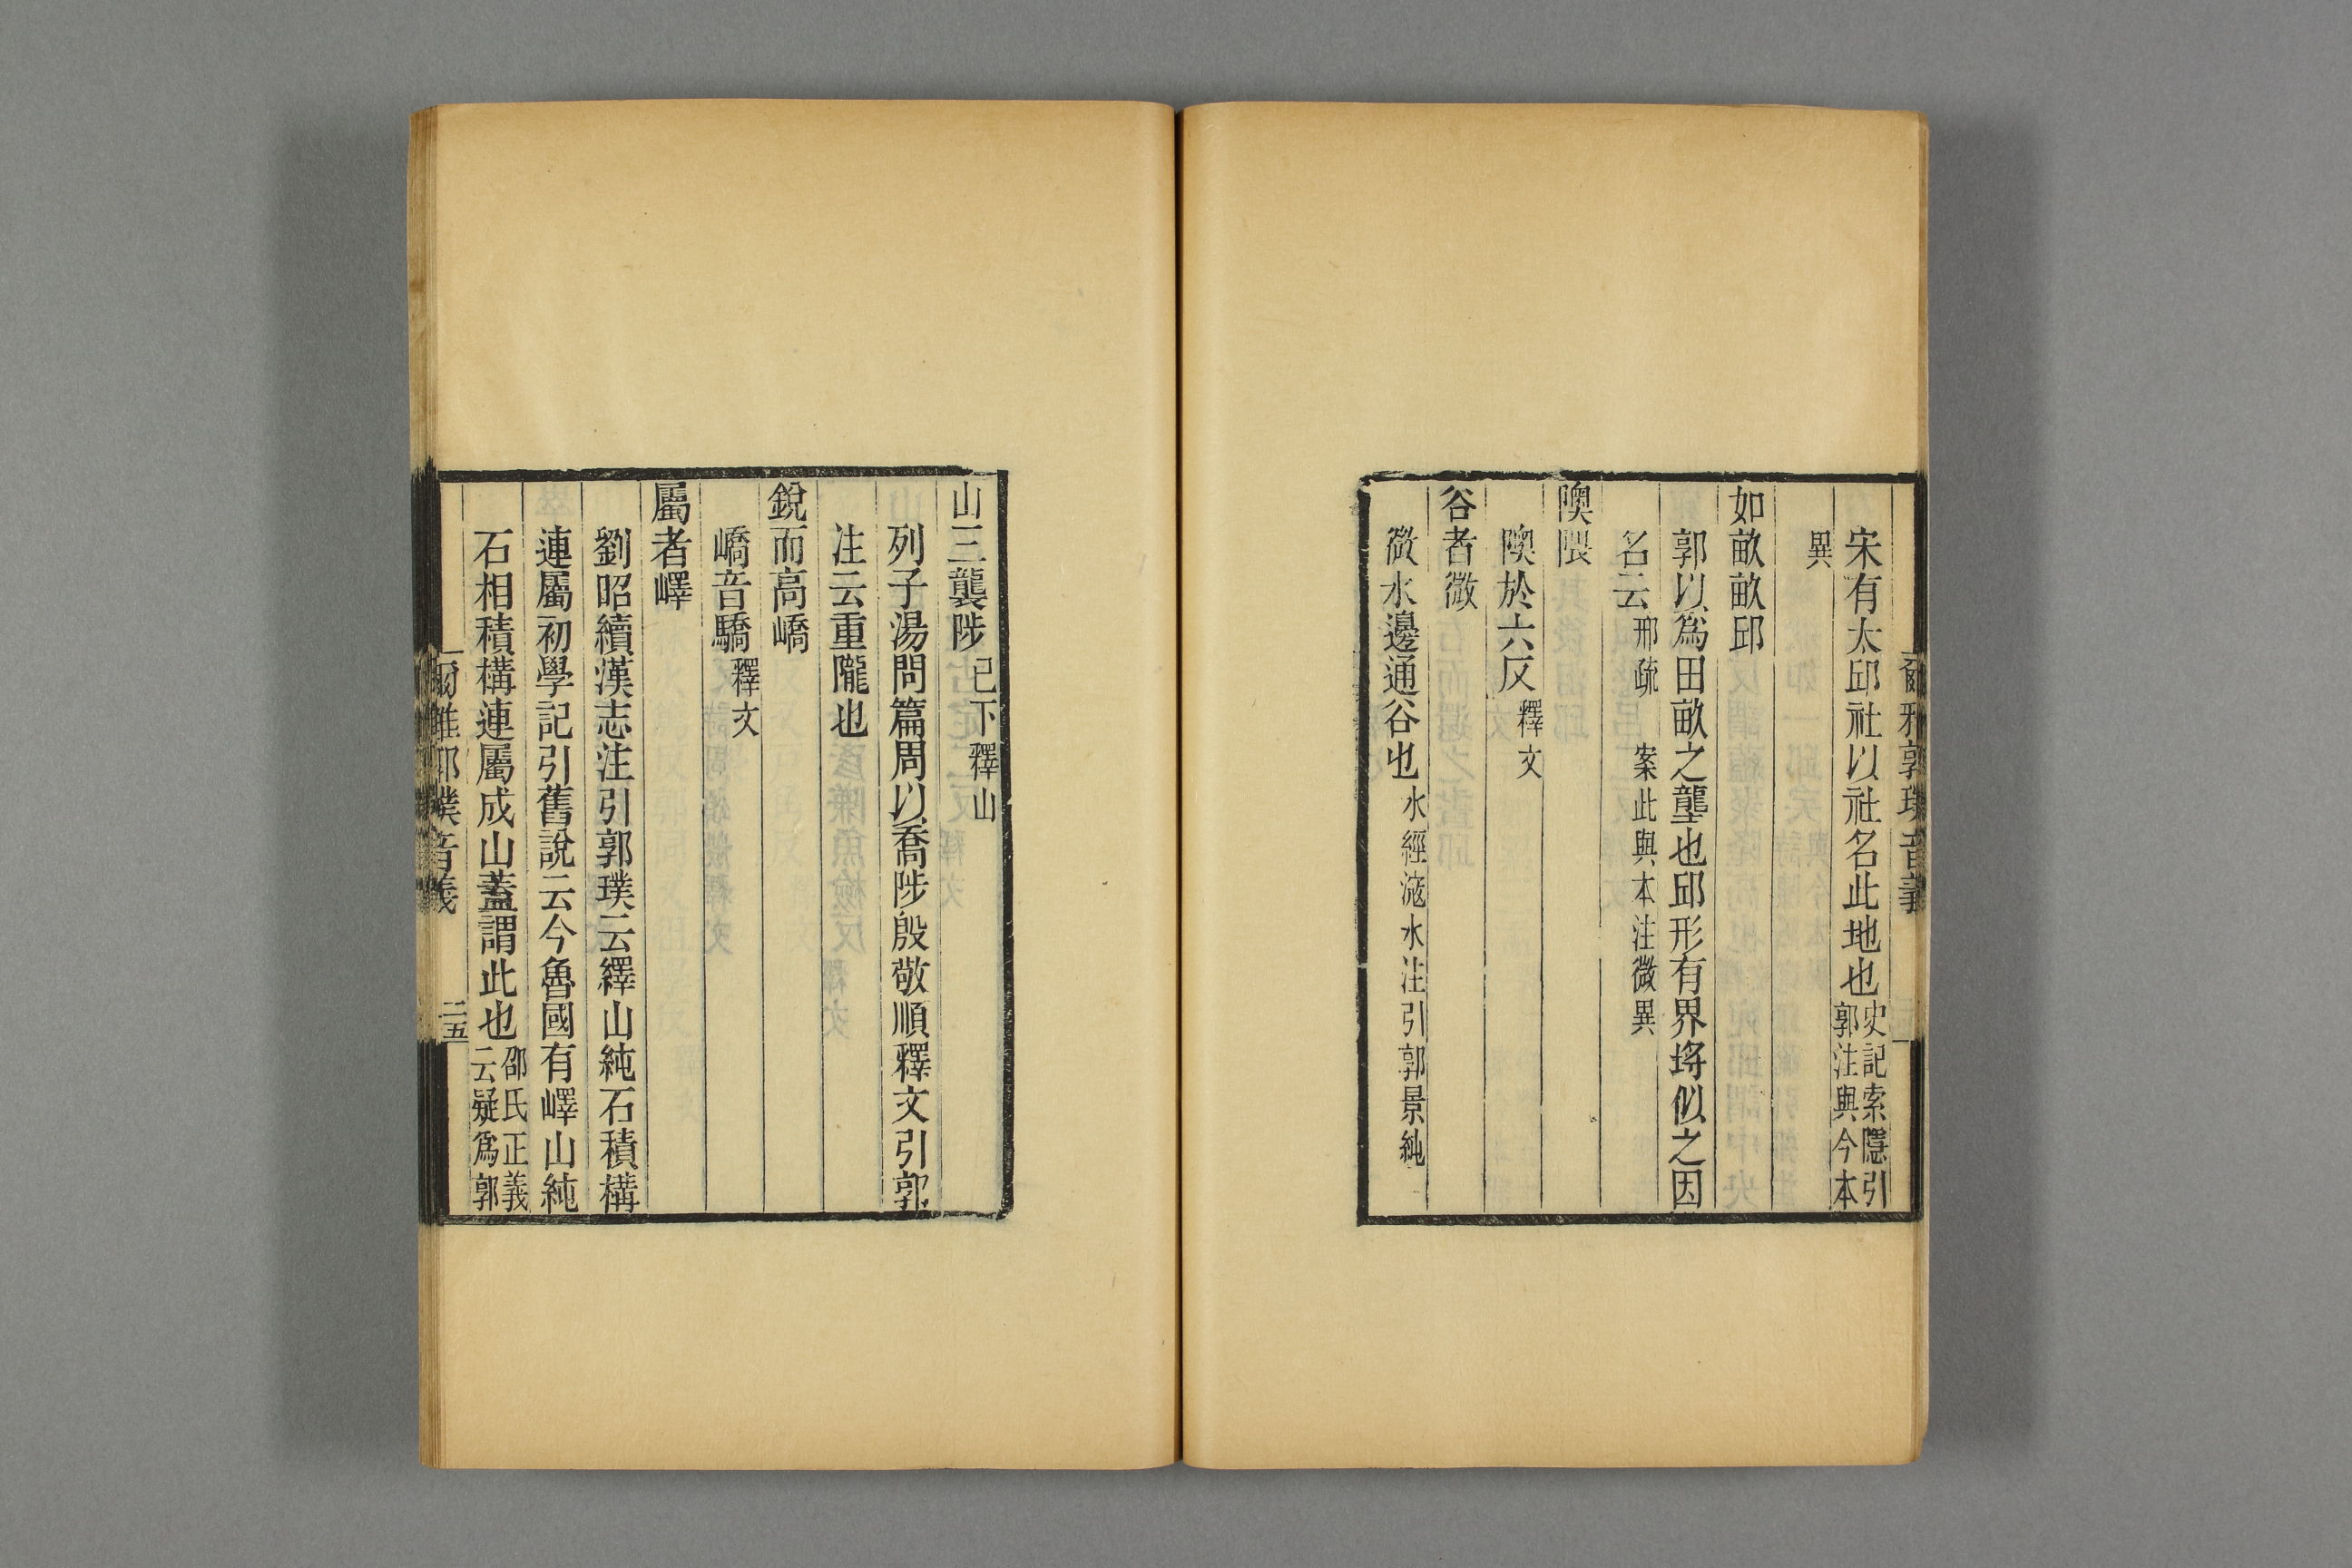 宋有太邱社以社名此地也史記索隱引郭注與今本
異
如畝畝邱
郭以爲田畝之壟也邱形有界埓似之因
名云邢疏 案此與本注微異
隩隈
隩於六反釋文
谷者微
微水邊通谷也水經滱水注引郭景純
爾雅郭璞音義
山三襲陟已下釋山
列子湯問篇周以喬陟殷敬順釋文引郭
注云重隴也
銳而高嶠
嶠音驕釋文
屬者嶧
劉昭續漢志注引郭璞云繹山純石積構
連屬初學記引舊說云今魯國有嶧山純
石相積構連屬成山蓋謂此也邵氏正義云疑爲郭
爾雅郭璞音義 二五